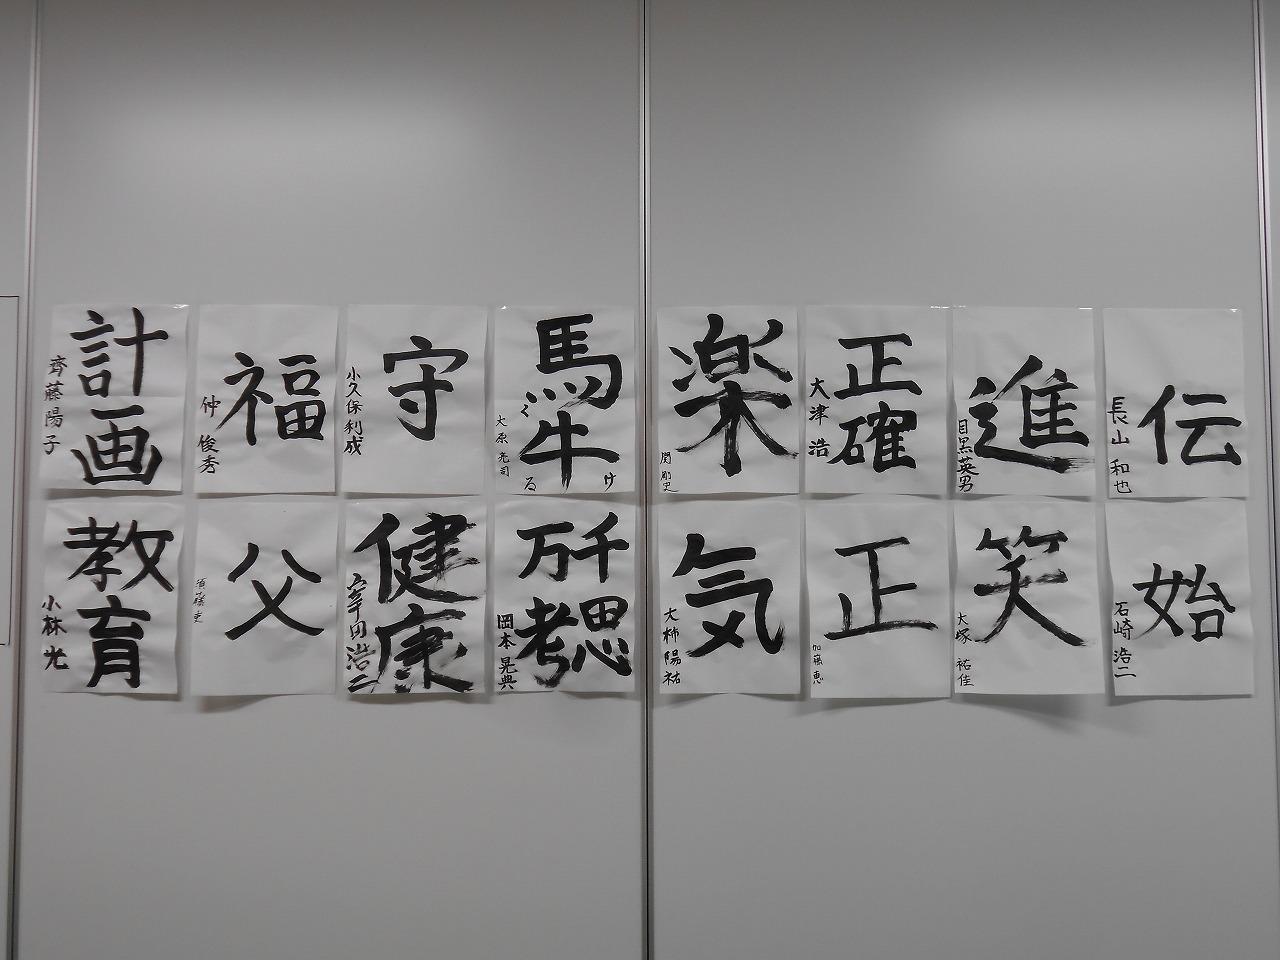 伝
長山 和也
進
目黒英男
正確
大津 浩
楽
関 剛史
馬牛
大原亮司
守
小久保利成
福
仲 俊秀
計画
齊藤陽子
始
石崎 浩二
笑
大塚 祐佳
正
加藤 恵
気
大柿陽祐
千思
万考
岡本晃典
健康
父
教育
小林 光